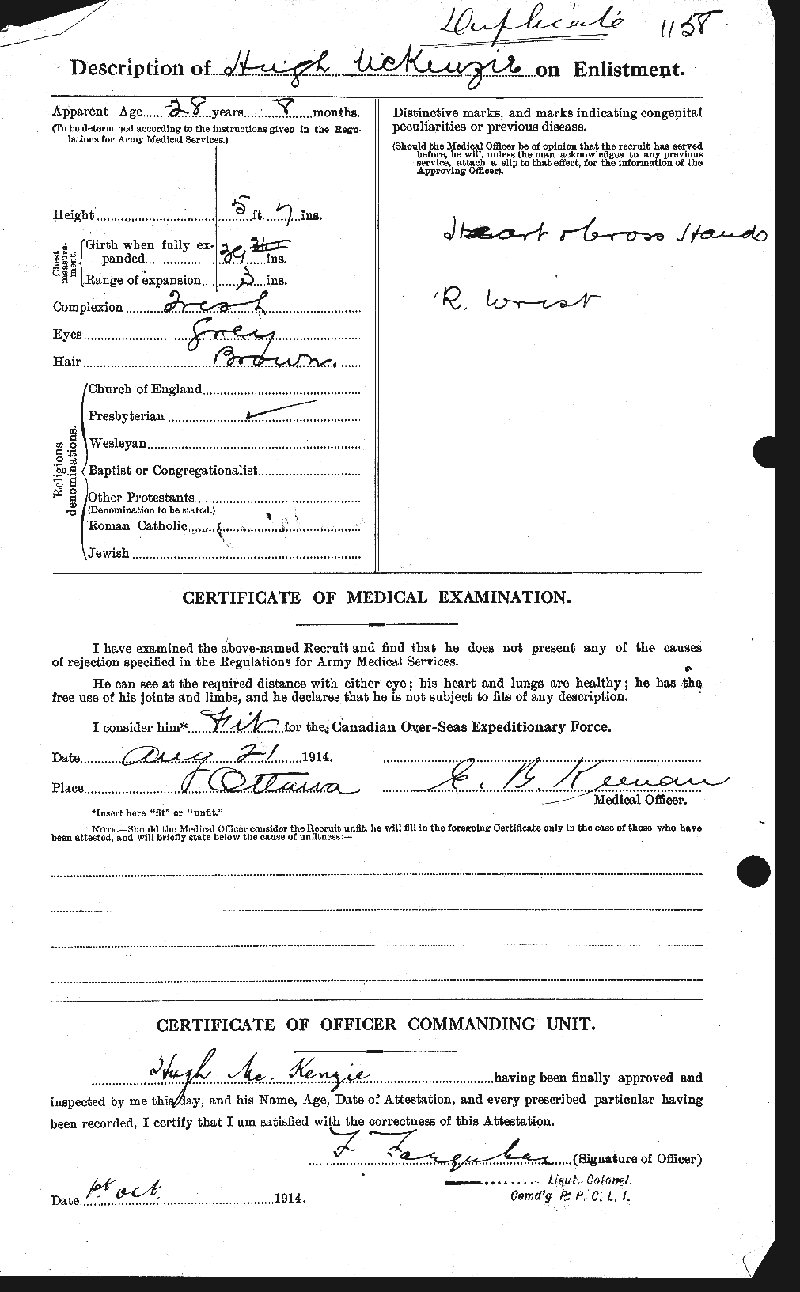 Duplicate 1158
Description of Hugh McKenzie on Enlistment.
Apparent Age 28 years 8 months.
(To be determined according to the instructions given in the Regulations for Army Medical Services.)
Height 5 ft. 7 ins.
Chest measurement.
Girth when fully expanded 39 ins.
Range of expansion 3 ins.
Complexion Fresh
Eyes Grey
Hair Brown.
Religious denominations.
Church of England
Presbyterian ✓
Wesleyan
Baptist or Congregationalist
Other Protestants
(Denomination to be stated.)
Roman Catholic
Jewish
Distinctive marks, and marks indicating congenital
peculiarities or previous disease.
(Should the Medical Officer be of opinion that the recruit has served
before, he will, unless the man acknowledges to any previous
service, attach a slip to that effect, for the information of the
Approving Officer).
Heart & Cross Hands
R. Wrist
CERTIFICATE OF MEDICAL EXAMINATION.
I have examined the above-named Recruit and find that he does not present any of the causes
of rejection specified in the Regulations for Army Medical Services.
He can see at the required distance with either eye; his heart and lungs are healthy; he has the
free use of his joints and limbs, and he declares that he is not subject to fits of any description.
I consider him* Fit for the Canadian Over-Seas Expeditionary Force.
Date Aug 21 1914.
Place Ottawa E. B. Keenan
Medical Officer.
*Insert here "fit" or "unfit."
NOTE.—Should the Medical Officer consider the Recruit unfit, he will fill in the foregoing Certificate only in the case of those who have
been attested, and will briefly state below the cause of unfitness:—
CERTIFICATE OF OFFICER COMMANDING UNIT.
Hugh Mc.Kenzie having been finally approved and
inspected by me this day, and his Name, Age, Date of Attestation, and every prescribed particular having
been recorded, I certify that I am satisfied with the correctness of this Attestation.
F Farquhar (Signature of Officer)
Lieut. Colonel.
Comd'g P. P. C. L. I.
Date 1st Oct. 1914.